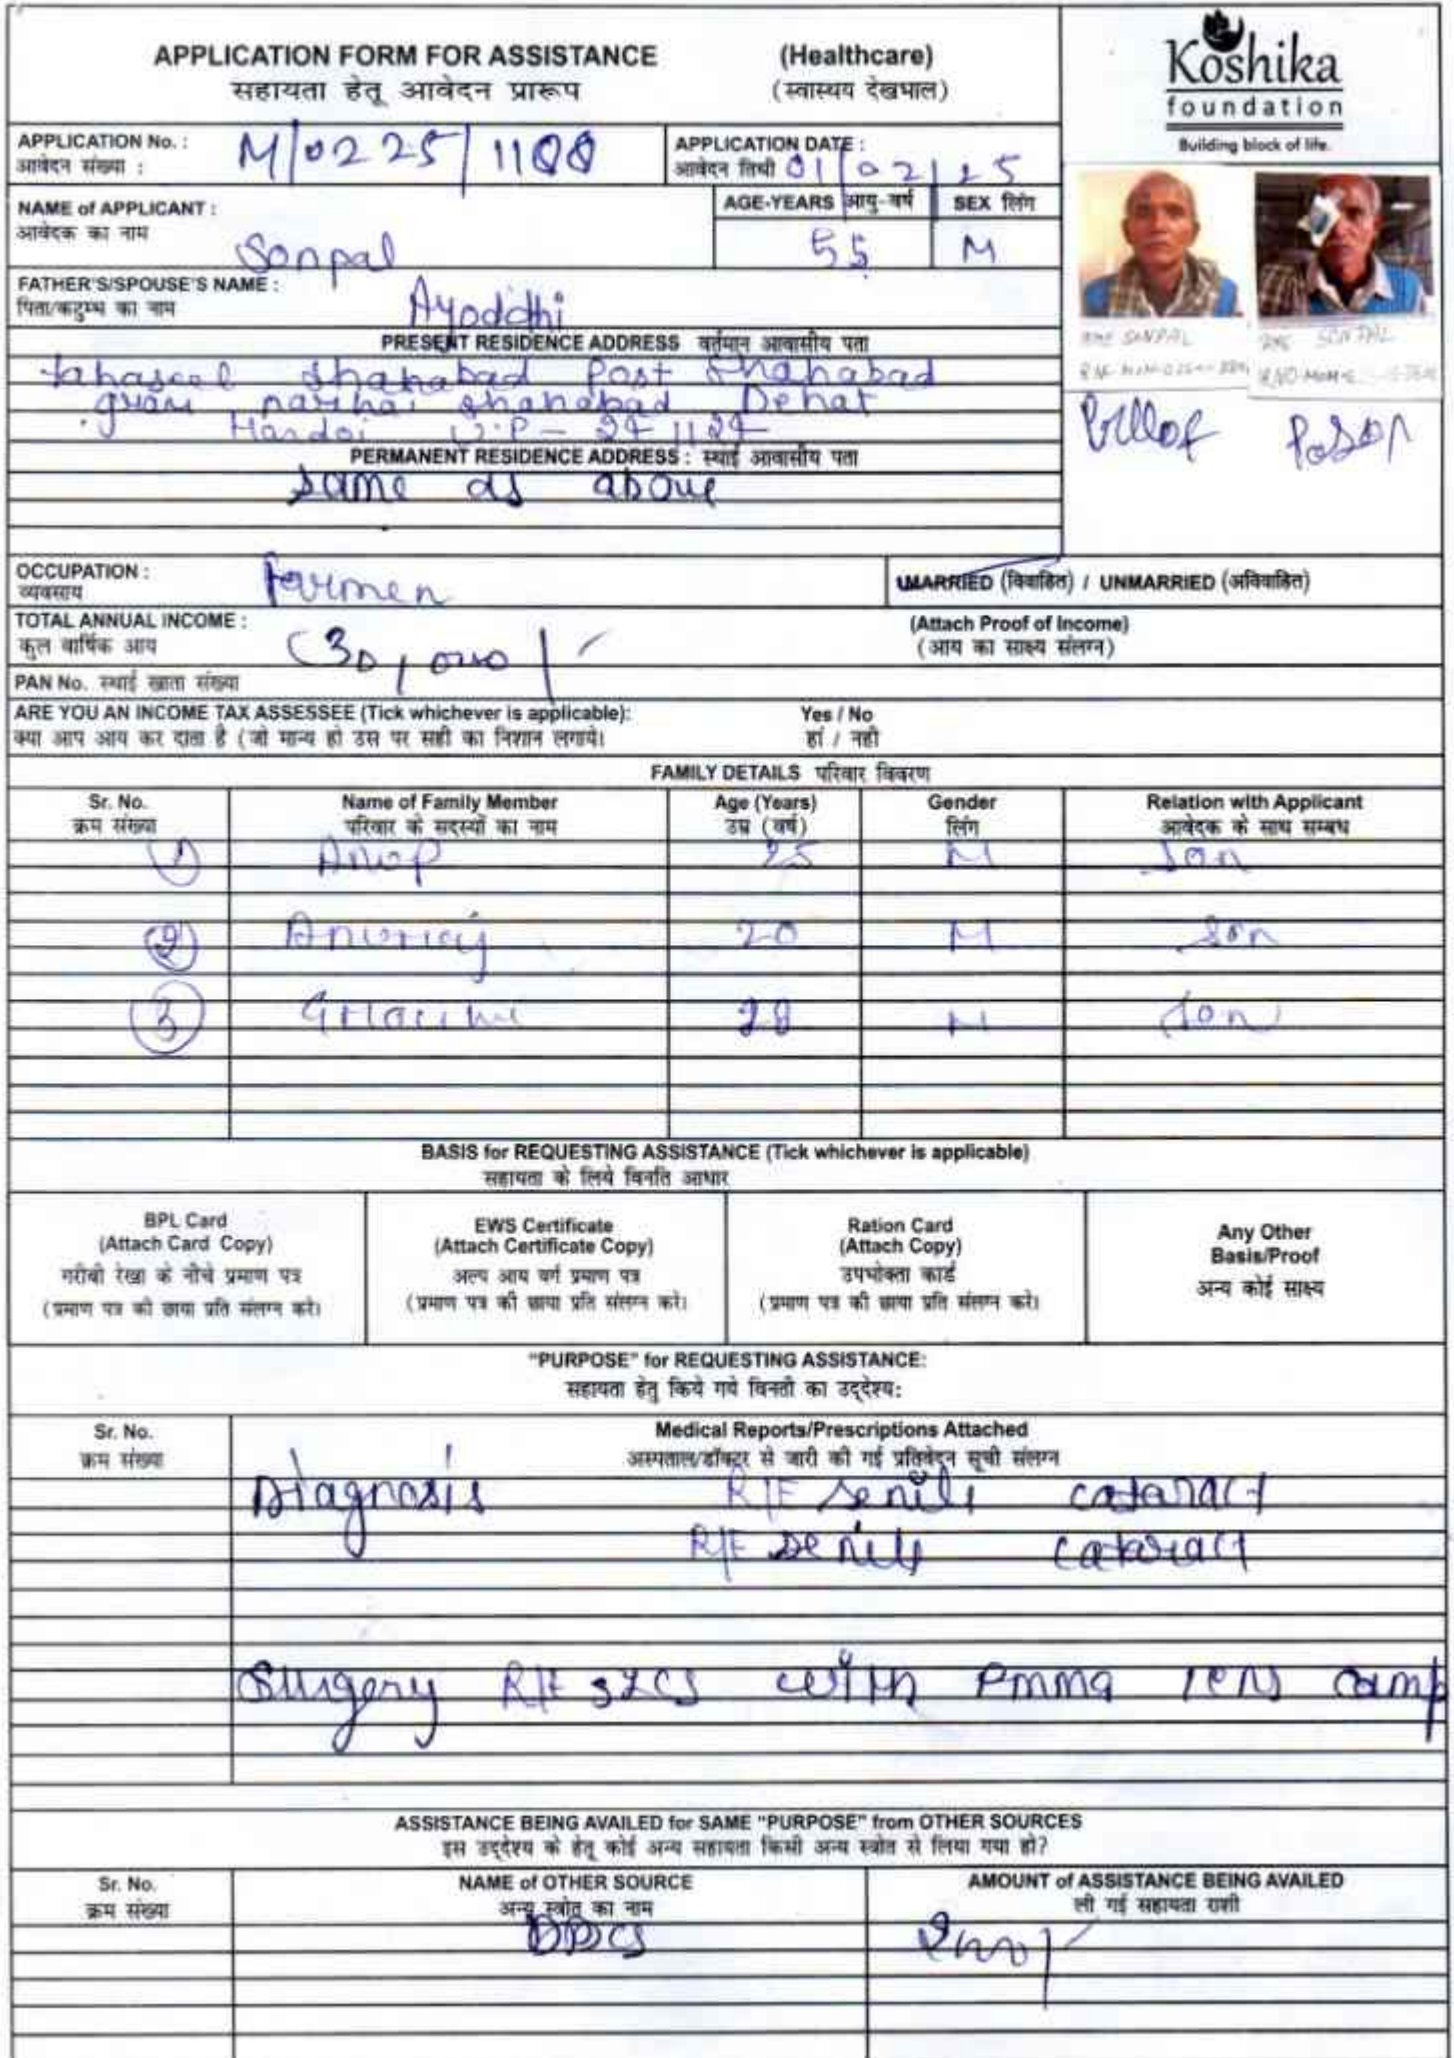 APPLICATION FORM FOR ASSISTANCE (Healthcare)
सहायता हेतू आवेदन प्रारूप (स्वास्थय देखभाल)
Koshika
foundation
Building block of life.
APPLICATION No. : M/0225/1100
आवेदन संख्या :
APPLICATION DATE :
आवेदन तिथी 01/02/25
NAME of APPLICANT :
आवेदक का नाम
Sonpal
AGE-YEARS आयु-वर्ष SEX लिंग
55 M
FATHER'S/SPOUSE'S NAME :
पिता/कटुम्भ का नाम
Ayoddhi
SONPAL
PRESENT RESIDENCE ADDRESS वर्तमान आवासीय पता
tahaseel Shahabad Post Shahabad
gram narhai shahabad Dehat
Hardoi U.P - 241124
PERMANENT RESIDENCE ADDRESS : स्थाई आवासीय पता
same as above
OCCUPATION :
व्यवसाय
Farmer
UMARRIED (विवाहित) / UNMARRIED (अविवाहित)
TOTAL ANNUAL INCOME :
कुल वार्षिक आय
30,000/-
(Attach Proof of Income)
(आय का साक्ष्य संलग्न)
PAN No. स्थाई खाता संख्या
ARE YOU AN INCOME TAX ASSESSEE (Tick whichever is applicable): Yes / No
क्या आप आय कर दाता है (जो मान्य हो उस पर सही का निशान लगाये। हां / नही
FAMILY DETAILS परिवार विवरण
Sr. No. Name of Family Member Age (Years) Gender Relation with Applicant
क्रम संख्या परिवार के सदस्यों का नाम उम्र (वर्ष) लिंग आवेदक के साथ सम्बध
1 Anop 25 M Son
2 Anuraj 20 M Son
3 28 M Son
BASIS for REQUESTING ASSISTANCE (Tick whichever is applicable)
सहायता के लिये विनति आधार
BPL Card
(Attach Card Copy)
गरीबी रेखा के नीचे प्रमाण पत्र
(प्रमाण पत्र की छाया प्रति संलग्न करे।
EWS Certificate
(Attach Certificate Copy)
अल्प आय वर्ग प्रमाण पत्र
(प्रमाण पत्र की छाया प्रति संलग्न करे।
Ration Card
(Attach Copy)
उपभोक्ता कार्ड
(प्रमाण पत्र की छाया प्रति संलग्न करे।
Any Other
Basis/Proof
अन्य कोई साक्ष्य
"PURPOSE" for REQUESTING ASSISTANCE:
सहायता हेतु किये गये विनती का उद्देश्य:
Sr. No. Medical Reports/Prescriptions Attached
क्रम संख्या अस्पताल/डॉक्टर से जारी की गई प्रतिवेदन सूची संलग्न
Diagnosis R/E senile cataract
R/E senile cataract
Surgery R/E SICS with Pmma lens camp
ASSISTANCE BEING AVAILED for SAME "PURPOSE" from OTHER SOURCES
इस उद्देश्य के हेतू कोई अन्य सहायता किसी अन्य स्त्रोत से लिया गया हो?
Sr. No. NAME of OTHER SOURCE AMOUNT of ASSISTANCE BEING AVAILED
क्रम संख्या अन्य स्त्रोत का नाम ली गई सहायता राशी